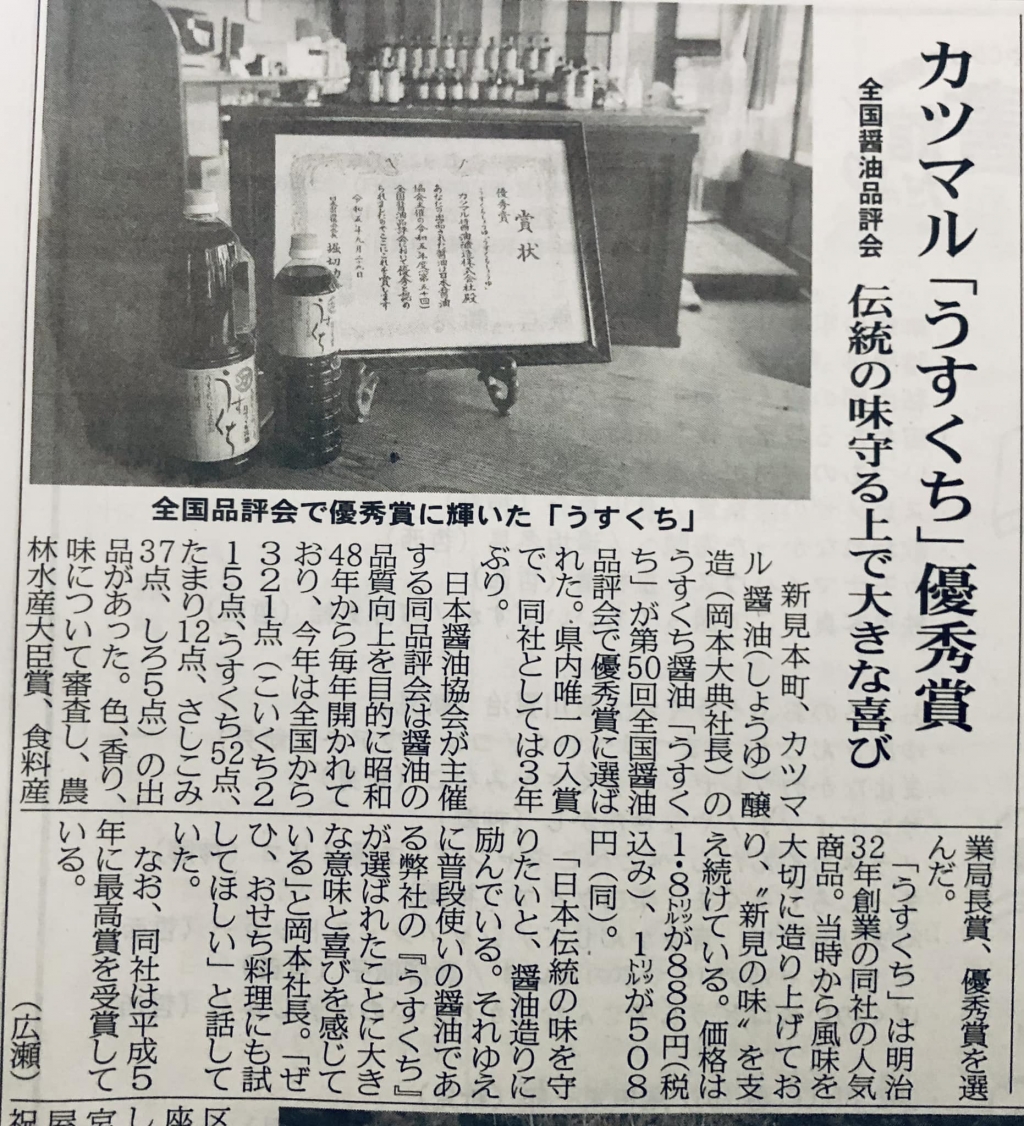 カツマル「うすくち」優秀賞
全国醤油品評会
伝統の味守る上で大きな喜び
賞状
優秀賞
カツマル醤油醸造株式会社殿
あなたの出品された醤油は日本醤油
協会主催の令和五年度(第五十回)
全国醤油品評会において優秀と認め
られましたのでここにこれを賞します
うすくち
うすくち
全国品評会で優秀賞に輝いた「うすくち」
新見本町、カツマ
ル醤油(しょうゆ)醸
造(岡本大典社長)の
うすくち醤油「うすく
ち」が第50回全国醤油
品評会で優秀賞に選ば
れた。県内唯一の入賞
で、同社としては3年
ぶり。
日本醤油協会が主催
する同品評会は醤油の
品質向上を目的に昭和
48年から毎年開かれて
おり、今年は全国から
321点(こいくち2
15点、うすくち52点、
たまり12点、さしこみ
37点、しろ5点)の出
品があった。色、香り、
味について審査し、農
林水産大臣賞、食料産
業局長賞、優秀賞を選
んだ。
「うすくち」は明治
32年創業の同社の人気
商品。当時から風味を
大切に造り上げてお
り、〝新見の味〟を支
え続けている。価格は
1・8㍑が886円(税
込み)、1㍑が508
円(同)。
「日本伝統の味を守
りたいと、醤油造りに
励んでいる。それゆえ
に普段使いの醤油であ
る弊社の『うすくち』
が選ばれたことに大き
な意味と喜びを感じて
いる」と岡本社長。「ぜ
ひ、おせち料理にも試
してほしい」と話して
いた。
なお、同社は平成5
年に最高賞を受賞して
いる。
(広瀬)
区
座
し
宮
屋
祝